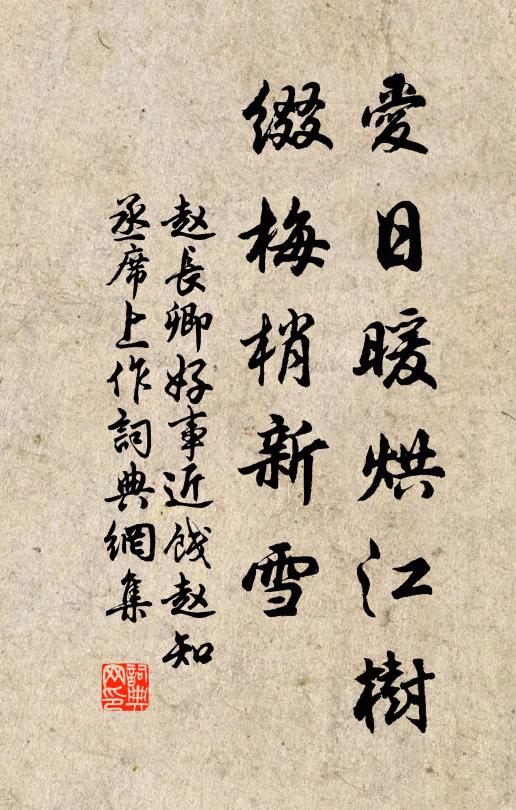 愛日暖烘江樹
綴梅梢新雪
赵長卿好事近餞赵知
丞席上作詞典網集
詞典
网印